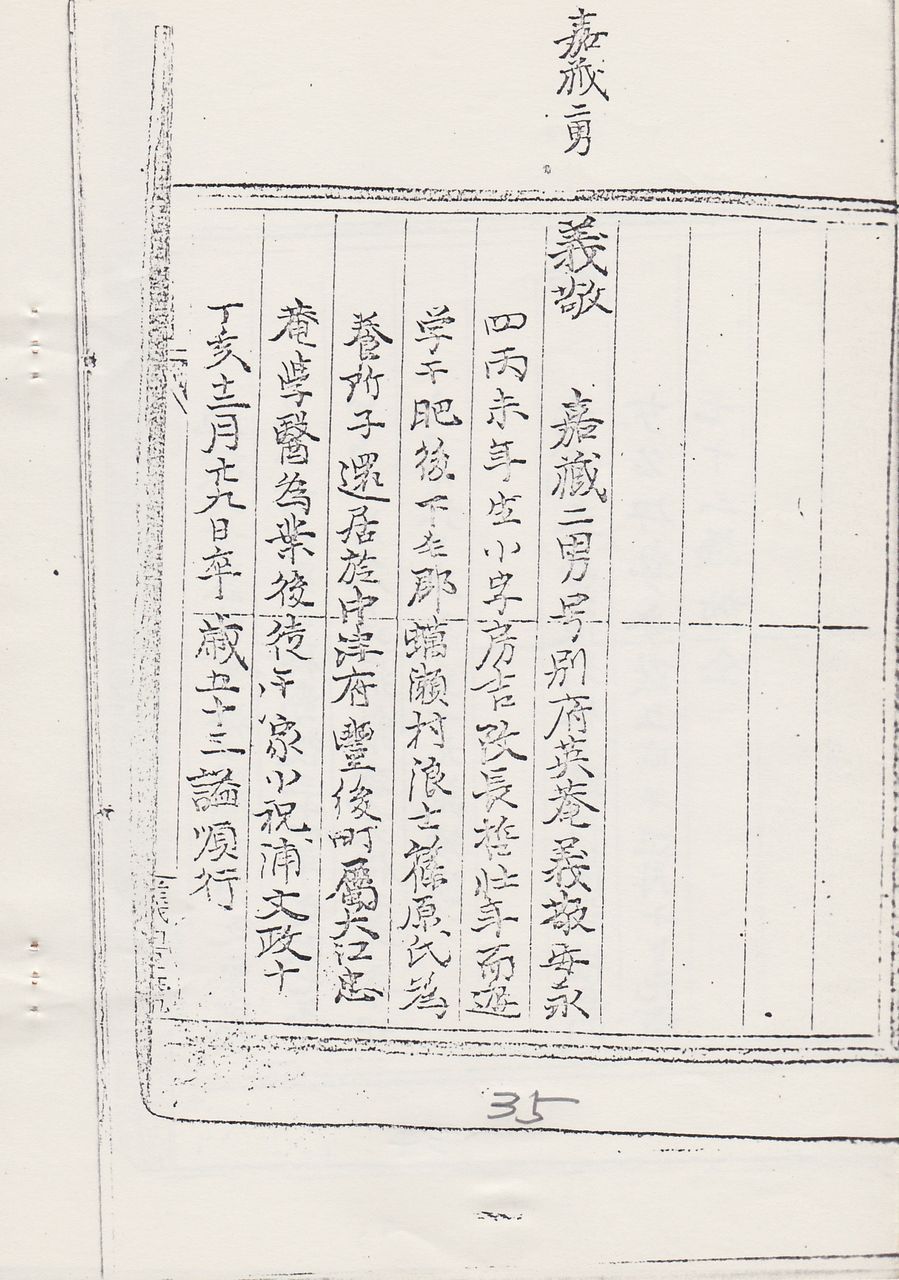 嘉蔵二男
義敬　嘉蔵二男号別府英菴義敬安永
四丙未年生小字房吉改長 壮年而遊
学于肥後下 郡 瀬村浪士篠原氏為
養所子還居於中津府豐後町屬大江忠
菴学醫為業後徒于 家小祝浦文政十
丁亥十二月廿九日卒歳五十三謚順行
35